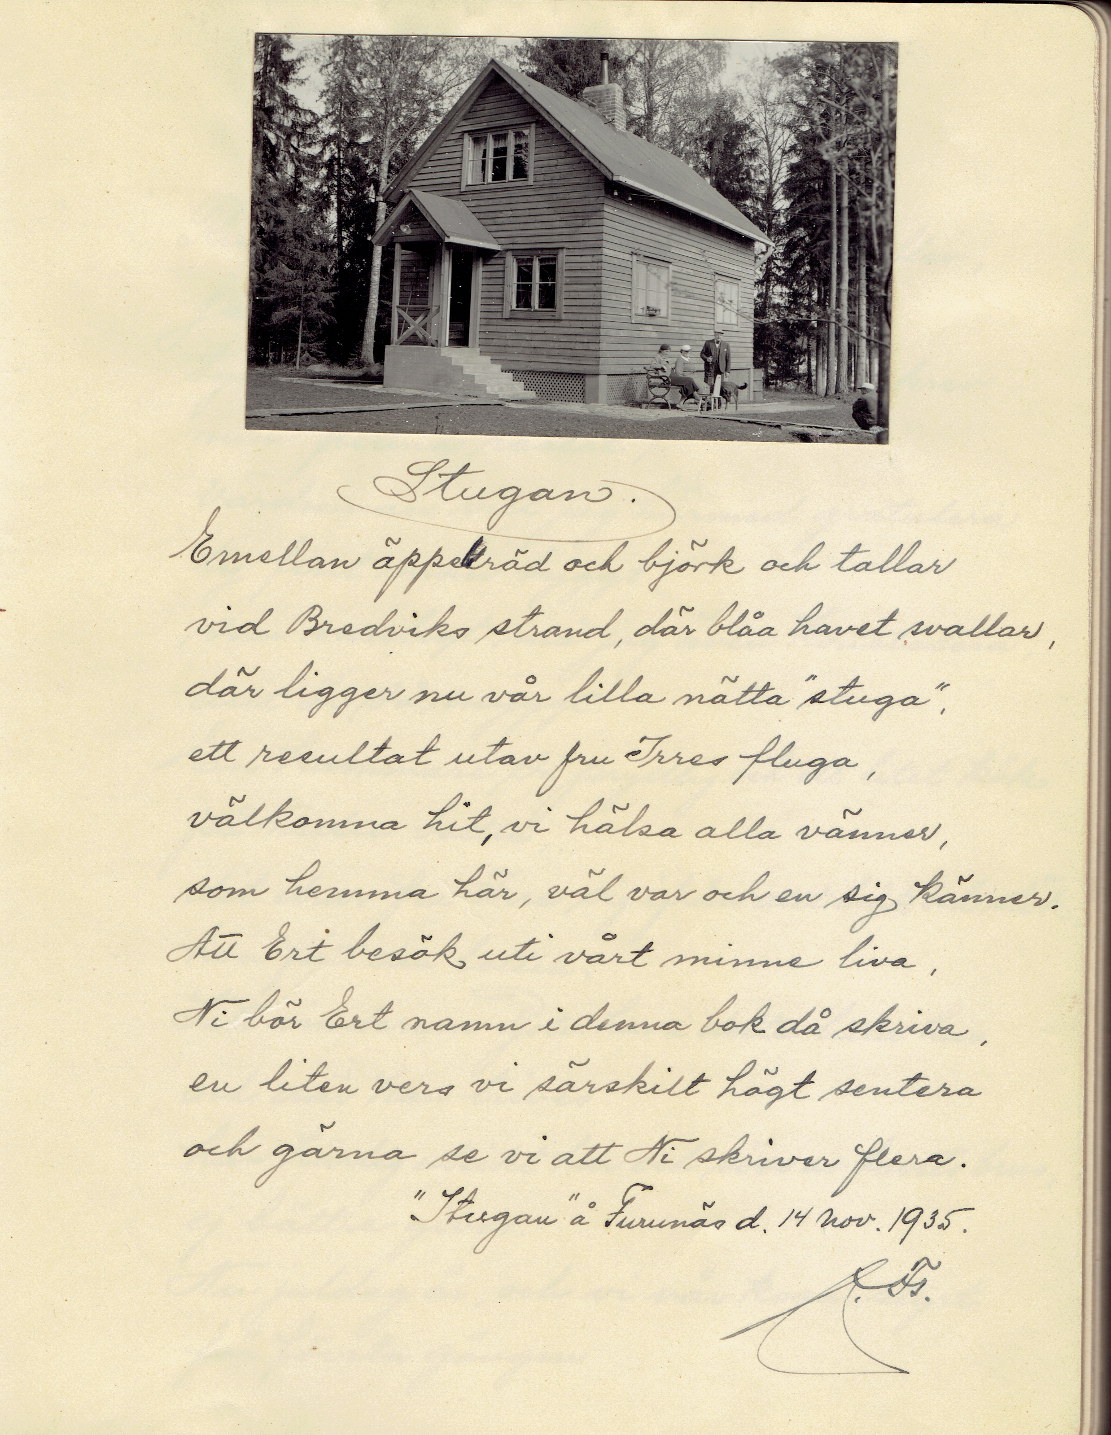 Stugan.
Emellan äppelträd och björk och tallar
vid Bredviks strand, där blåa havet svallar,
där ligger nu vår lilla nätta "stuga",
ett resultat utav fru Irres fluga,
välkomna hit, vi hälsa alla vänner,
som hemma här, väl var och en sig känner.
Att Ert besök uti vårt minne liva,
Ni bör Ert namn i denna bok då skriva,
en liten vers vi särskilt högt sentera
och gärna se vi att Ni skriver flera.
"Stugan" å Furunäs d. 14 nov. 1935.